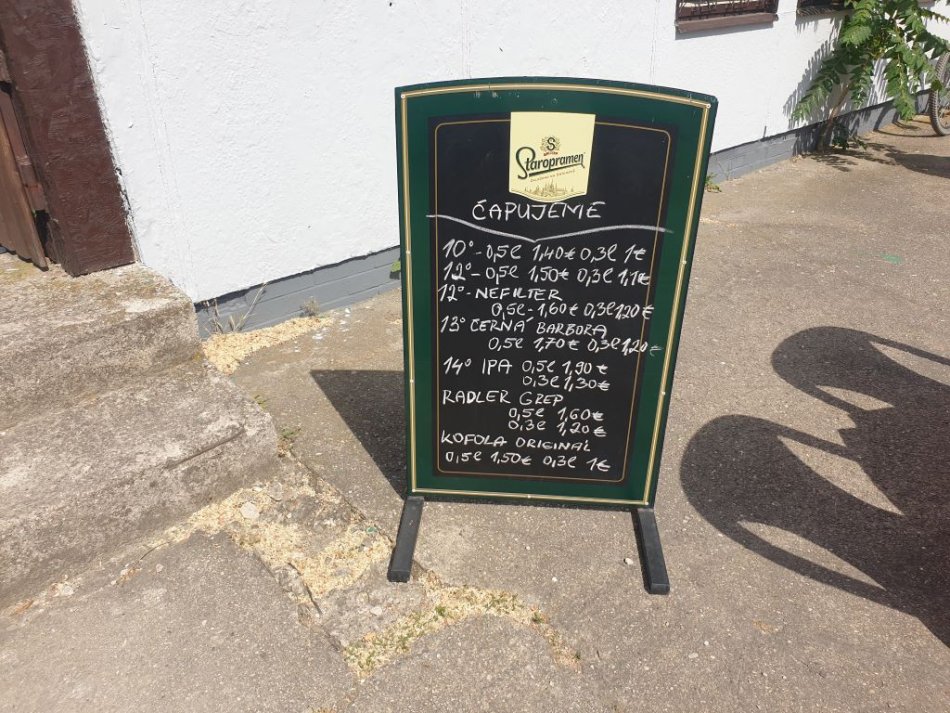 Staropramen
ČAPUJEME
10° - 0,5l 1,40€ 0,3l 1€
12° - 0,5l 1,50€ 0,3l 1,1€
12° - NEFILTER
0,5l - 1,60€ 0,3l 1,20€
13° ČERNÁ BARBORA
0,5l 1,70€ 0,3l 1,20€
14° IPA 0,5l 1,90€
0,3l 1,30€
RADLER GREP
0,5l 1,60€
0,3l 1,20€
KOFOLA ORIGINAL
0,5l 1,50€ 0,3l 1€